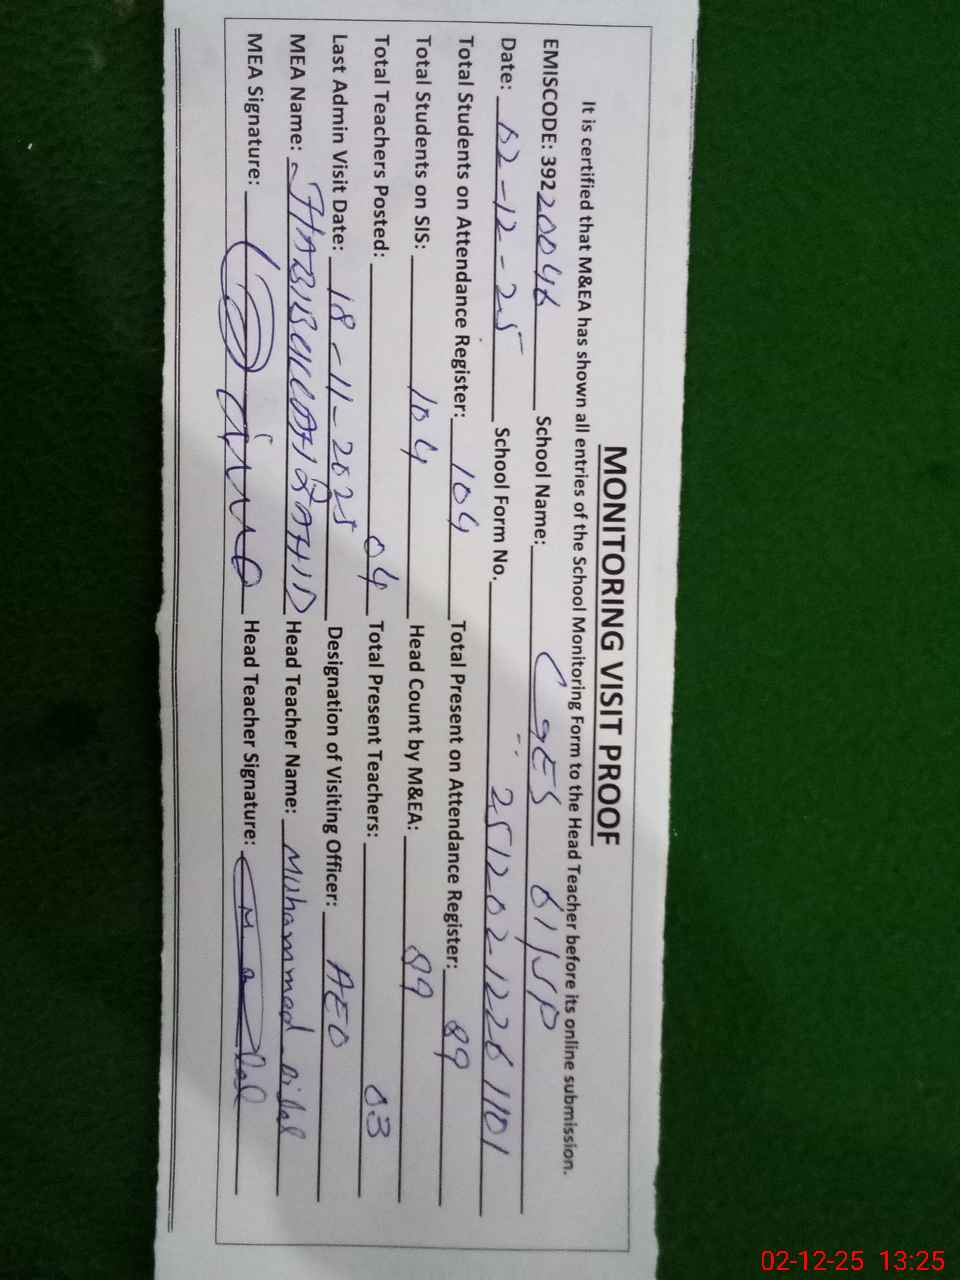 MONITORING VISIT PROOF
It is certified that M&EA has shown all entries of the School Monitoring Form to the Head Teacher before its online submission.
EMISCODE: 39220046 School Name: GES 61/5P
Date: 02-12-25 School Form No. 25120212261101
Total Students on Attendance Register: 104 Total Present on Attendance Register: 89
Total Students on SIS: 104 Head Count by M&EA: 89
Total Teachers Posted: 04 Total Present Teachers: 03
Last Admin Visit Date: 18-11-2025 Designation of Visiting Officer: AEO
MEA Name: HABIBULLAH ZAHID Head Teacher Name: Muhammad Bilal
MEA Signature: Head Teacher Signature:
02-12-25 13:25